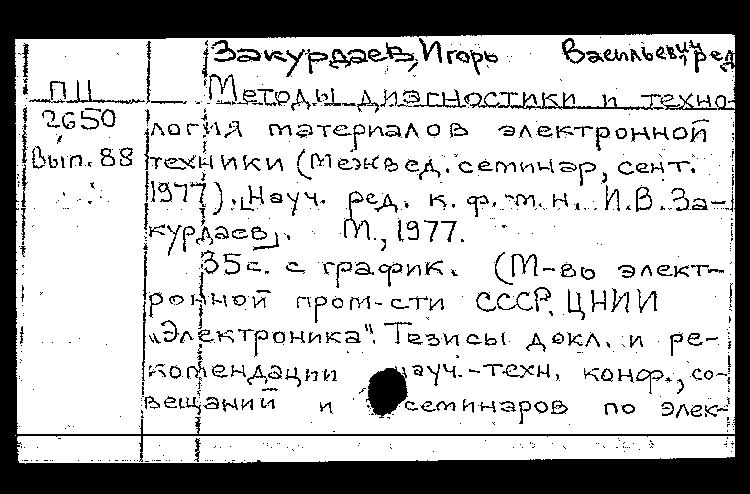 Закурдаев, Игорь Васильевич, ред
П 11
2650
Вып. 88
Методы диагностики и техно-
логия материалов электронной
техники (Межвед. семинар, сент.
1977). [Науч. ред. к. ф.-м. н. И.В. За-
курдаев]. М., 1977.
35 с. с график. (М-во элект-
ронной пром-сти СССР, ЦНИИ
„Электроника". Тезисы докл. и ре-
комендации науч.-техн. конф., со-
вещаний и семинаров по элек-